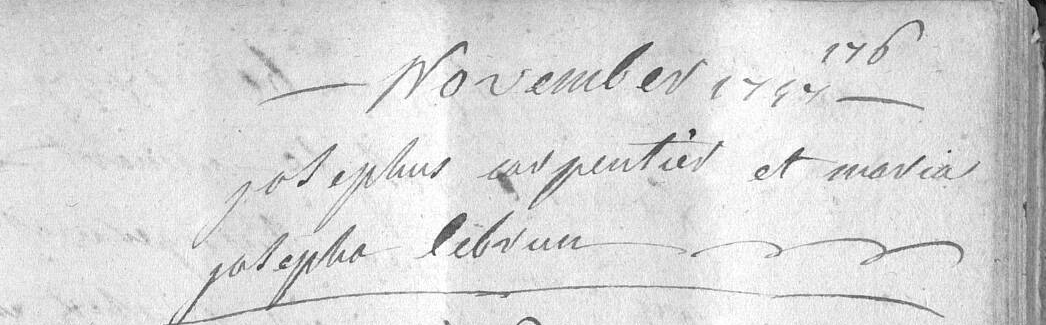 176
— November 1797 —
josephus carpentier et maria
josepha lebrun